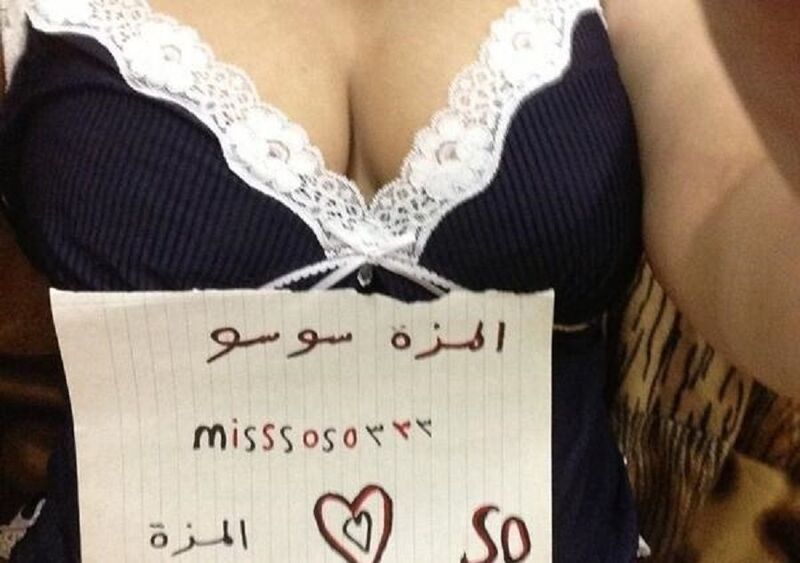 المزة سوسو
misssoso٣٣٣
المزة ♡ so